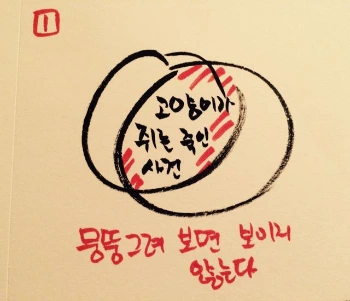 1
고양이가
쥐는 죽인
사건
뭉뚱그려 보면 보이지
않는다